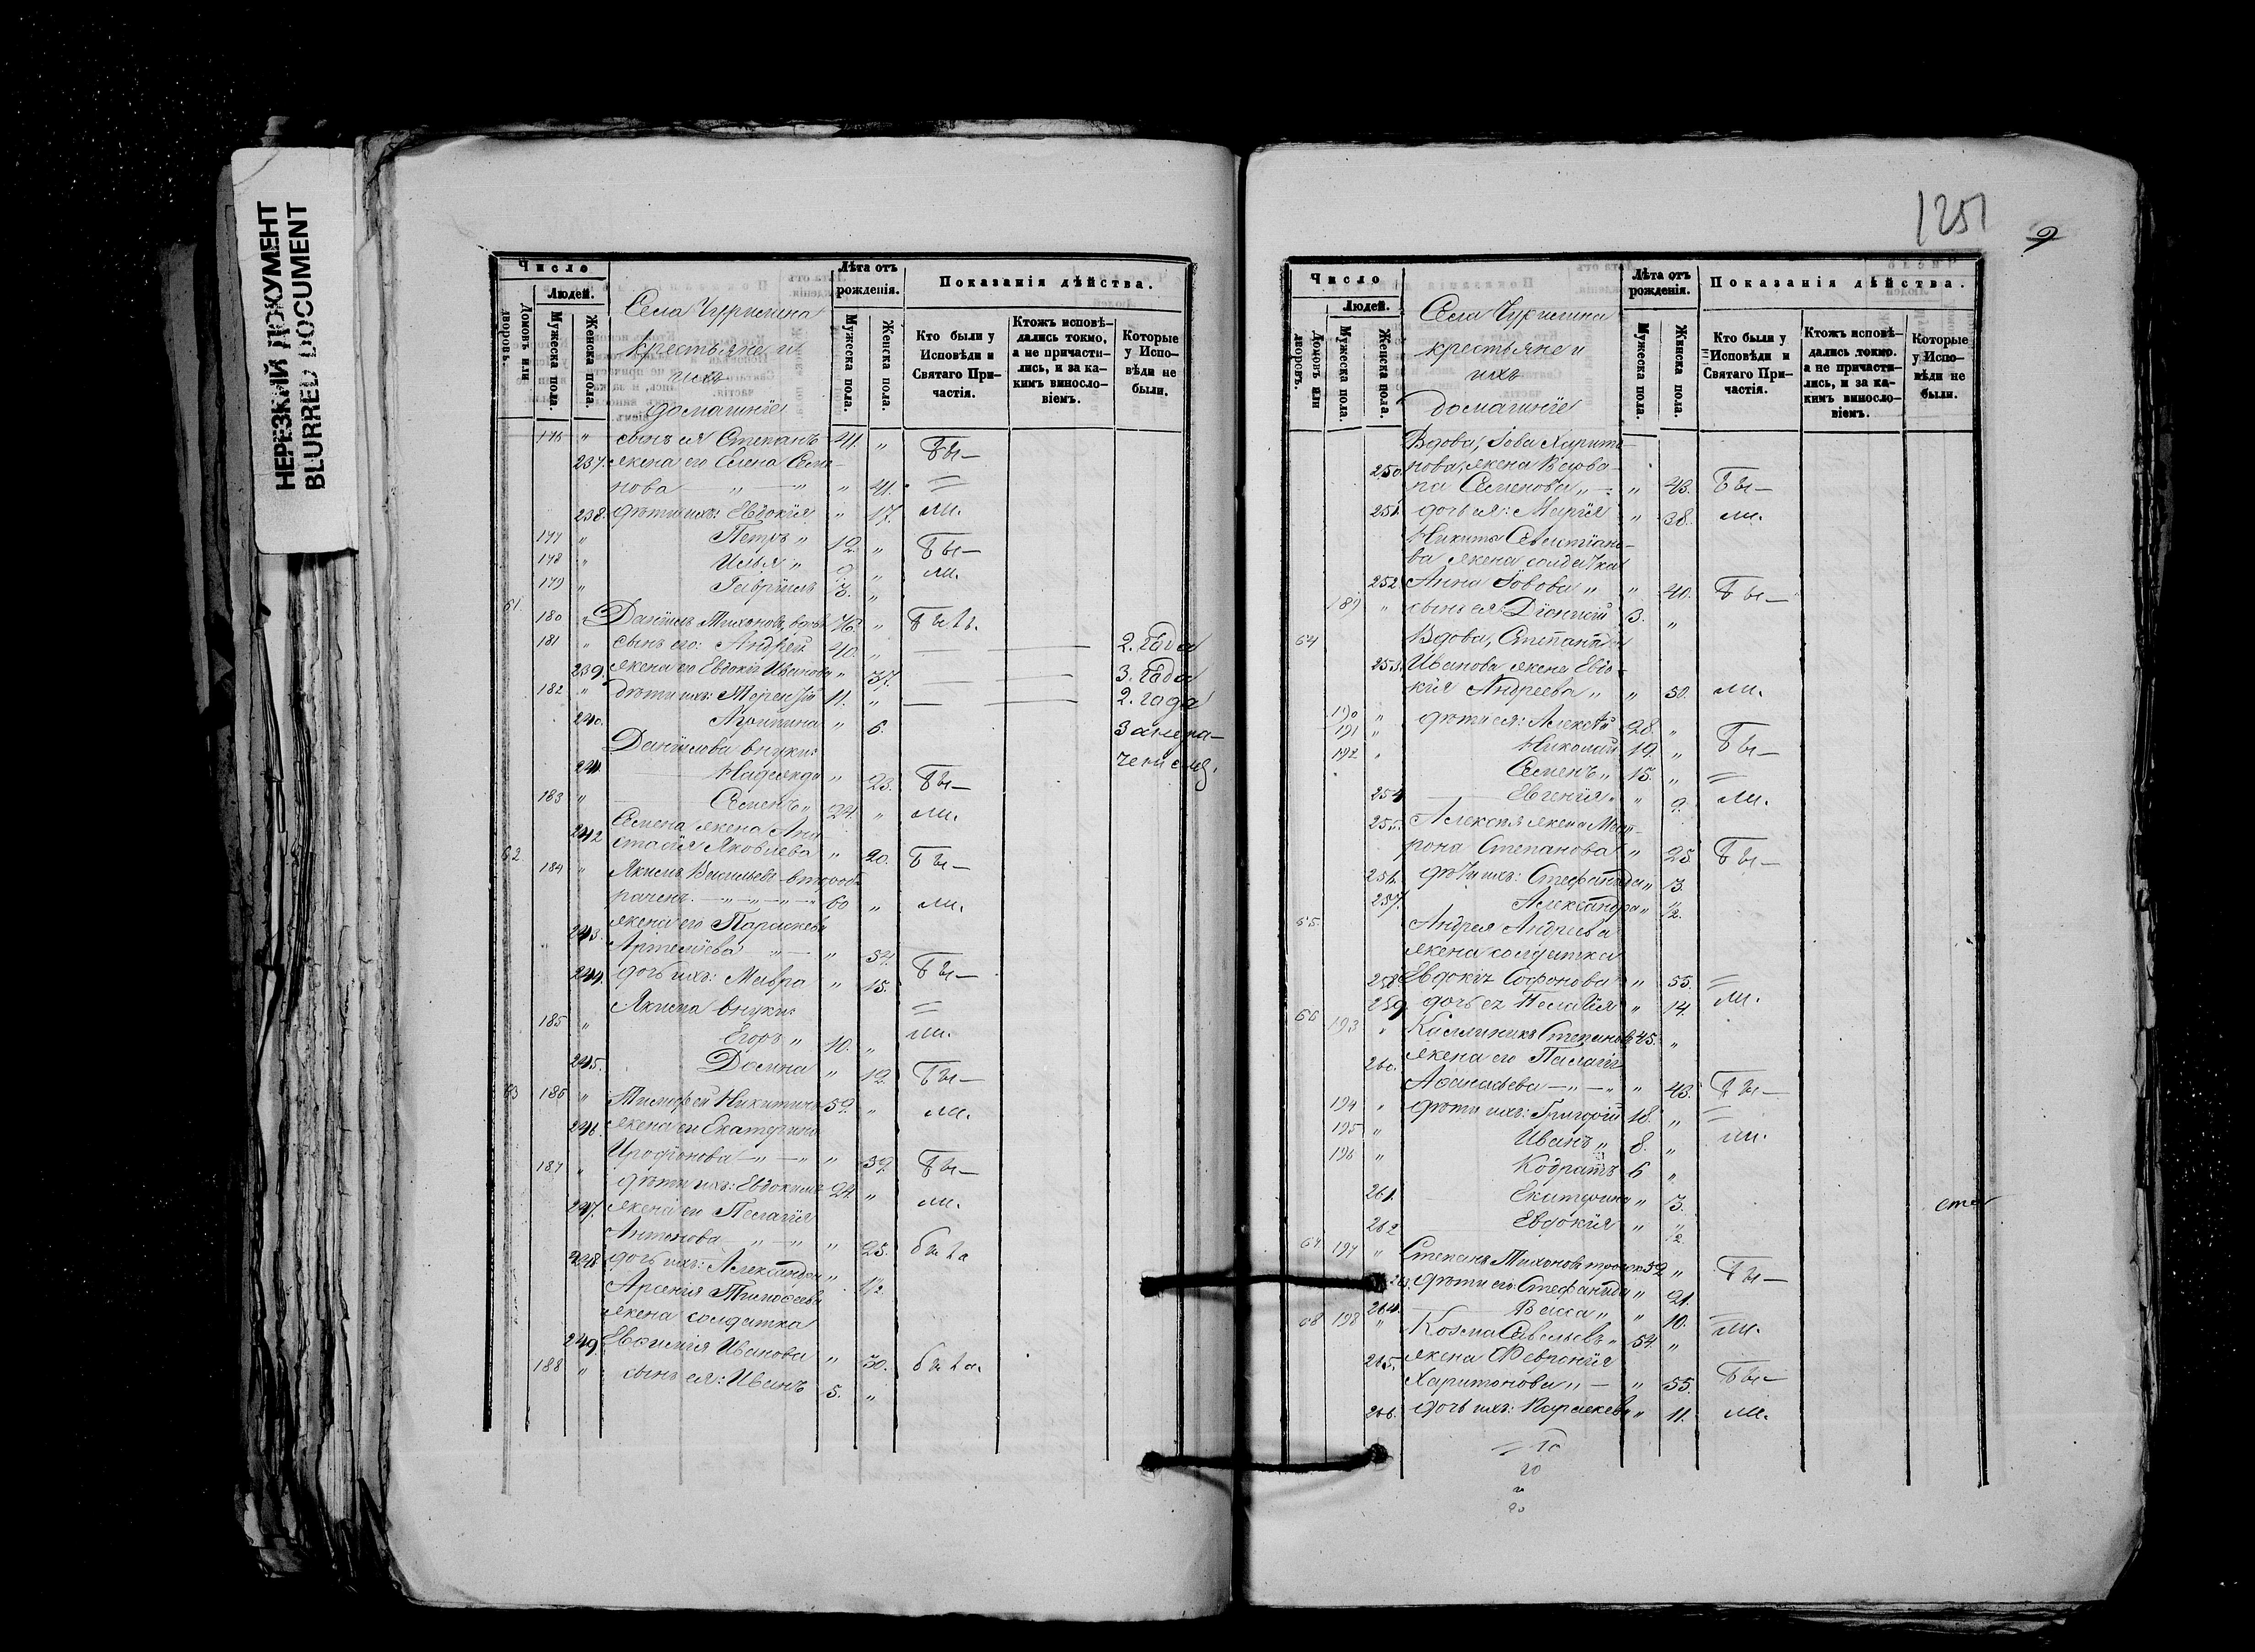 НЕРЕЗКИЙ ДОКУМЕНТ
BLURRED DOCUMENT
Число
Людей.
Домовъ или дворовъ.
Мужеска пола.
Женска пола.
Села Чуришина
крестьяне и
ихъ
домашніе
Лѣта отъ рожденія.
Мужеска пола.
Женска пола.
Показанія дѣйства.
Кто были у Исповѣди и Святаго Причастія.
Ктожъ исповѣдались токмо, а не причастились, и за какимъ винословіемъ.
Которые у Исповѣди не были.
176 " сынъ ея Степанъ 41. " Бы—
237. жена его Елена Семе-
нова " " 41. =
238. дѣти ихъ: Евдокія " 17. ли.
177 " Петръ " 12. " Бы—
178 " Илья " 9. " ли.
179 " Гавріилъ 3. "
61.
180 " Даніилъ Тихоновъ, вдовъ 76. "
181 " сынъ его: Андрей 40. " 2. года
239. жена его Евдокія Иванова " 37. 3. года
182 " дѣти ихъ: Терентій 11. " 2. года
240. " 6.
Даніилова внуки:
241. Надежда " 23. Бы—
183 " Семенъ " 24. " ли.
Семена жена Ана-
242 стасія Яковлева " 20. Бы—
62.
184 " Якимъ Васильевъ второб-
раченъ " 60 " ли.
243. жена его Параскева
Артеміева " " 54.
244. дочь ихъ: Мавра " 15. Бы—
Якима внуки: =
185 " Егоръ " 10. " ли.
245. Домна " 12. Бы—
63 186 " Тимофей Никитинъ 59. " ли.
246. жена его Екатерина
" " 59. Бы—
187 " дѣти ихъ: Евдокимъ 24. " ли.
247. жена его Пелагія
Антонова " " 25. была
248 дочь ихъ: Александра " 1/2.
Арсенія Тимофеева
жена солдатка
249 Евфимія Иванова " 30. была.
188 " сынъ ея: Иванъ 5. "
1251
9
Число
Людей.
Домовъ или дворовъ.
Мужеска пола.
Женска пола.
Села Чуришина
крестьяне и
ихъ
домашніе
Лѣта отъ рожденія.
Мужеска пола.
Женска пола.
Показанія дѣйства.
Кто были у Исповѣди и Святаго Причастія.
Ктожъ исповѣдались токмо. а не причастились, и за какимъ винословіемъ.
Которые у Исповѣди не были.
Вдова, Іова Харито-
250. нова, жена
Семенова " " 43. Бы—
251. дочь ея: Марія " 38. ли.
Никиты
ва жена солдатка
252. Анна Іовова " " 40. Бы—
189 " сынъ ея: Діонисій 3. "
64 Вдова, Степана
253. Иванова жена Евдо-
кія Андреева " " 50. ли.
190 " дѣти ея: Алексѣй 28. "
191 " Николай 19. " Бы—
192 " Семенъ " 15. " =
254 Евгенія " " 9. ли.
255. Алексѣя жена Мат-
рона Степанова " 25 Бы—
256. дѣти ихъ: Стефанида " 3.
257. Александра " 1/2.
65. Андрея Андреева
жена солдатка
258 Евдокія Софонова " 55. =
259 дочь ея Пелагія " 14. ли.
66 193 " Каллиникъ Степановъ 45. "
260. жена его Пелагія
Афанасьева " " 43. Бы—
194 " дѣти ихъ: Григорій 18. " =
195 " Иванъ " 8. " ли.
196 " Кодратъ 6 "
261. Екатерина " 3.
262 Евдокія " 1/2.
67 197 " Степанъ Тихоновъ 52 " Бы—
дѣти его: Стефанида " 21.
264. Васса " " 10. =
68 198 " Козма Савельевъ " 54. " ли.
265. жена Февронія
Харитонова " " 55. Бы—
266. дочь ихъ: Параскева " 11. ли.